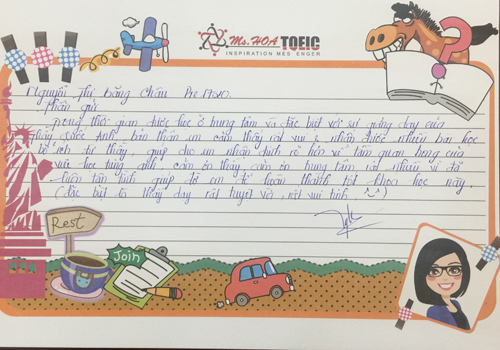 Ms. HOA TOEIC
INSPIRATION MESSENGER
Nguyễn Thị Đăng Châu Pre
Thân gửi
Trong thời gian được học ở trung tâm và đặc biệt với sự giảng dạy của
thầy Đức Anh bản thân em cảm thấy rất vui vì nhận được nhiều bài học
bổ ích từ thầy, giúp cho em nhận định rõ hơn về tầm quan trọng của
việc học tiếng anh, cảm ơn thầy, cảm ơn trung tâm rất nhiều vì đã
luôn tận tình giúp đỡ em để hoàn thành tốt khoá học này.
(đặc biệt là thầy dạy rất tuyệt vời, rất vui tính ^^)
Rest
Join